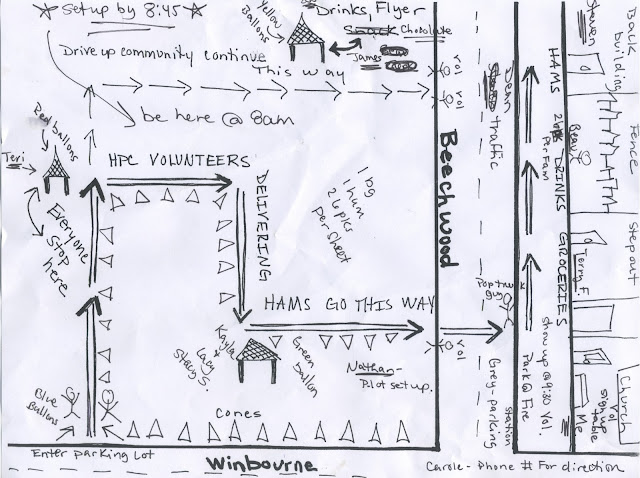 Set up by 8:45
Yellow
Ballons
Drinks, Flyer
Snack Chocolate
James
Drive up community continue
This way
be here @ 8am
Red ballons
Teri
HPC VOLUNTEERS
Everyone
Stop
here
DELIVERING
1 bg
1 ham
2 6pks
per sheet
HAMS GO THIS WAY
Kayla
Lacy
Stacy S.
Green
ballon
Nathan-
P.lot set up.
Blue
Ballons
Cones
Enter parking Lot
Winbourne
Carole - Phone # For direction
vol
vol
vol
Beechwood
Dean
traffic
Pop truck
guy
Grey-parking
station
HAMS
DRINKS
Per Fam
GROCERIES
Show up @ 9:30 Vol.
Park @ Fire
Steven
Beau
Terry F.
Me
Back
building
Fence
Step out
Church
vol
sign up
table